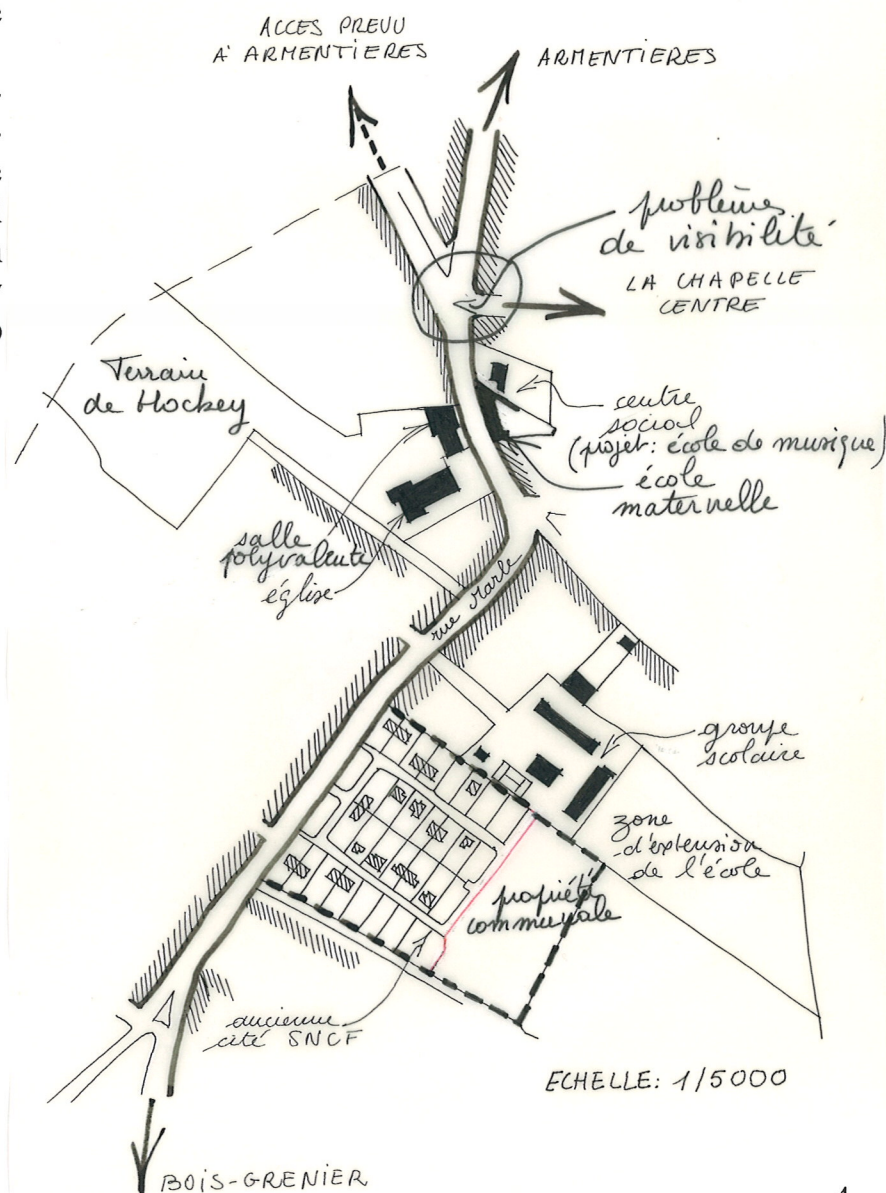 ACCES PREVU
A ARMENTIERES
ARMENTIERES
problèmes
de visibilité
LA CHAPELLE
CENTRE
Terrain
de Hockey
centre
social
(projet: école de musique)
école
maternelle
salle
polyvalente
église
rue Marle
groupe
scolaire
zone
d'extension
de l'école
propriété
communale
ancienne
cité SNCF
ECHELLE: 1/5000
BOIS-GRENIER